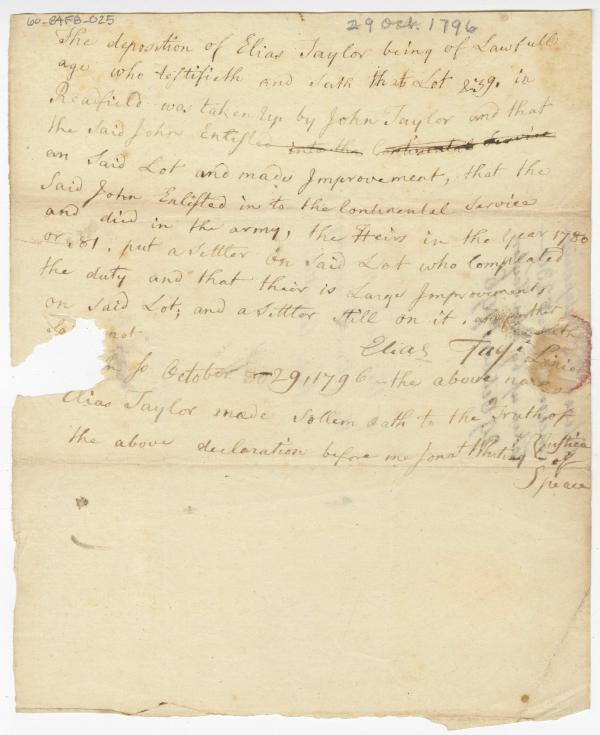 60-84FB-025
29 Oct. 1796
The deposition of Elias Taylor being of Lawfull
age who testifieth and sath that Lot 159. in
Readfield was taken up by John Taylor and that
the said John Enlisted into the Continental Service
on Said Lot and made Improvement, that the
Said John Enlisted in to the Continental Service
and died in the army, the Heirs in the Year 1780
or 81. put a Settler on said Lot who compleated
the duty and that their is Large Improvements
on said Lot; and a Settler still on it, and further
not
Elias Taylor
Lincoln ss October 29, 1796 the above named
Elias Taylor made Sollem oath to the Truth of
the above declaration before me Jonat Whiting Justice
of
peace